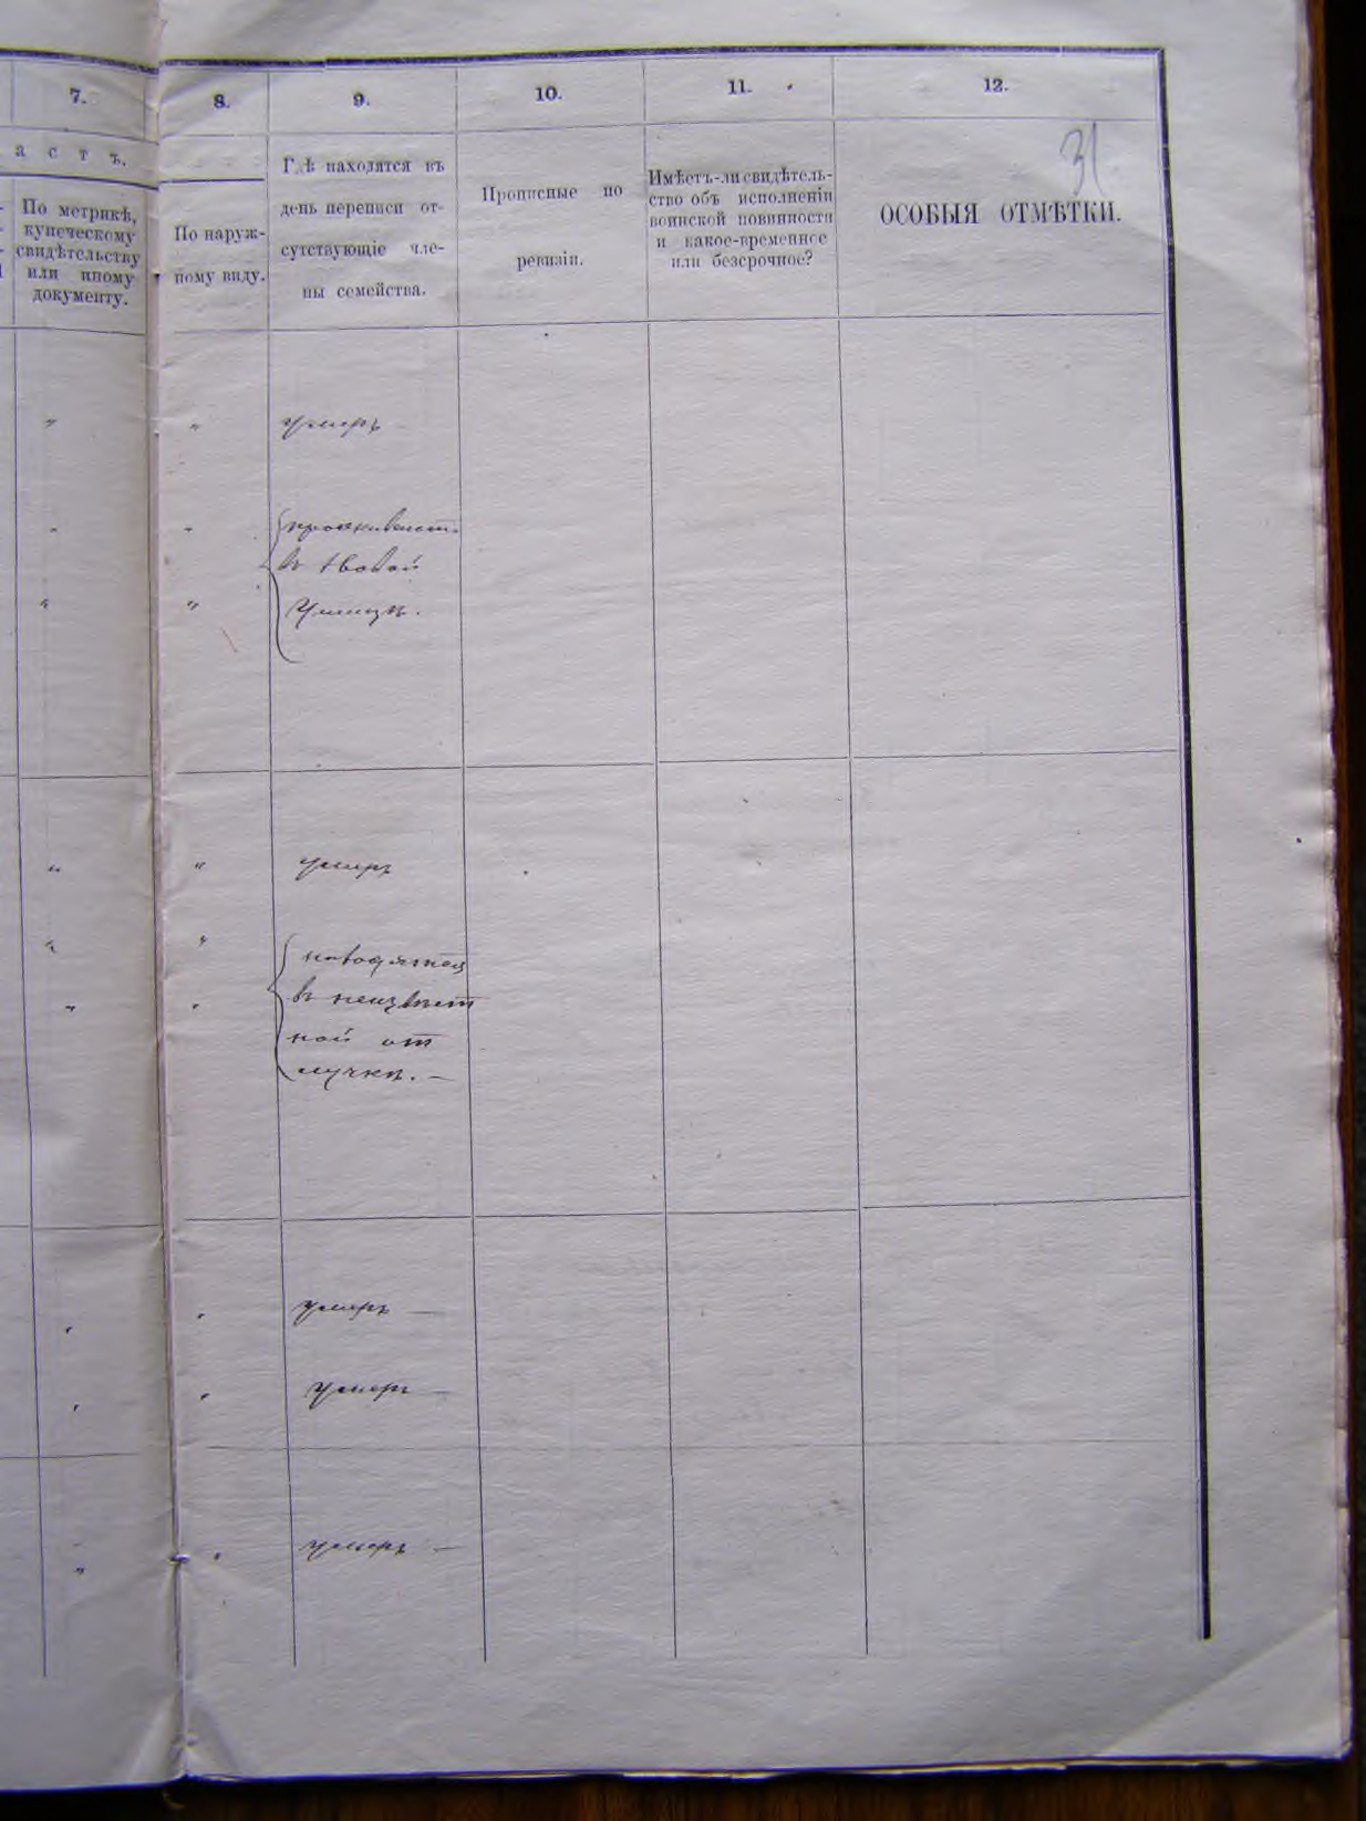 7.
8.
9.
10.
11.
12.
31
а с т ъ.
По метрикѣ,
купеческому
свидѣтельству
или иному
документу.
По наруж-
ному виду.
Гдѣ находятся въ
день переписи от-
сутствующіе чле-
ны семейства.
Прописные по
ревизіи.
Имѣетъ-ли свидѣтель-
ство объ исполненіи
воинской повинности
и какое-временное
или безсрочное?
ОСОБЫЯ ОТМѢТКИ.
" " умеръ —
" " проживает.
въ
" "
" " умеръ
" " находятся
" " въ неизвѣст
ной от
лучкѣ. —
" " умеръ —
" " умеръ —
" " умеръ —